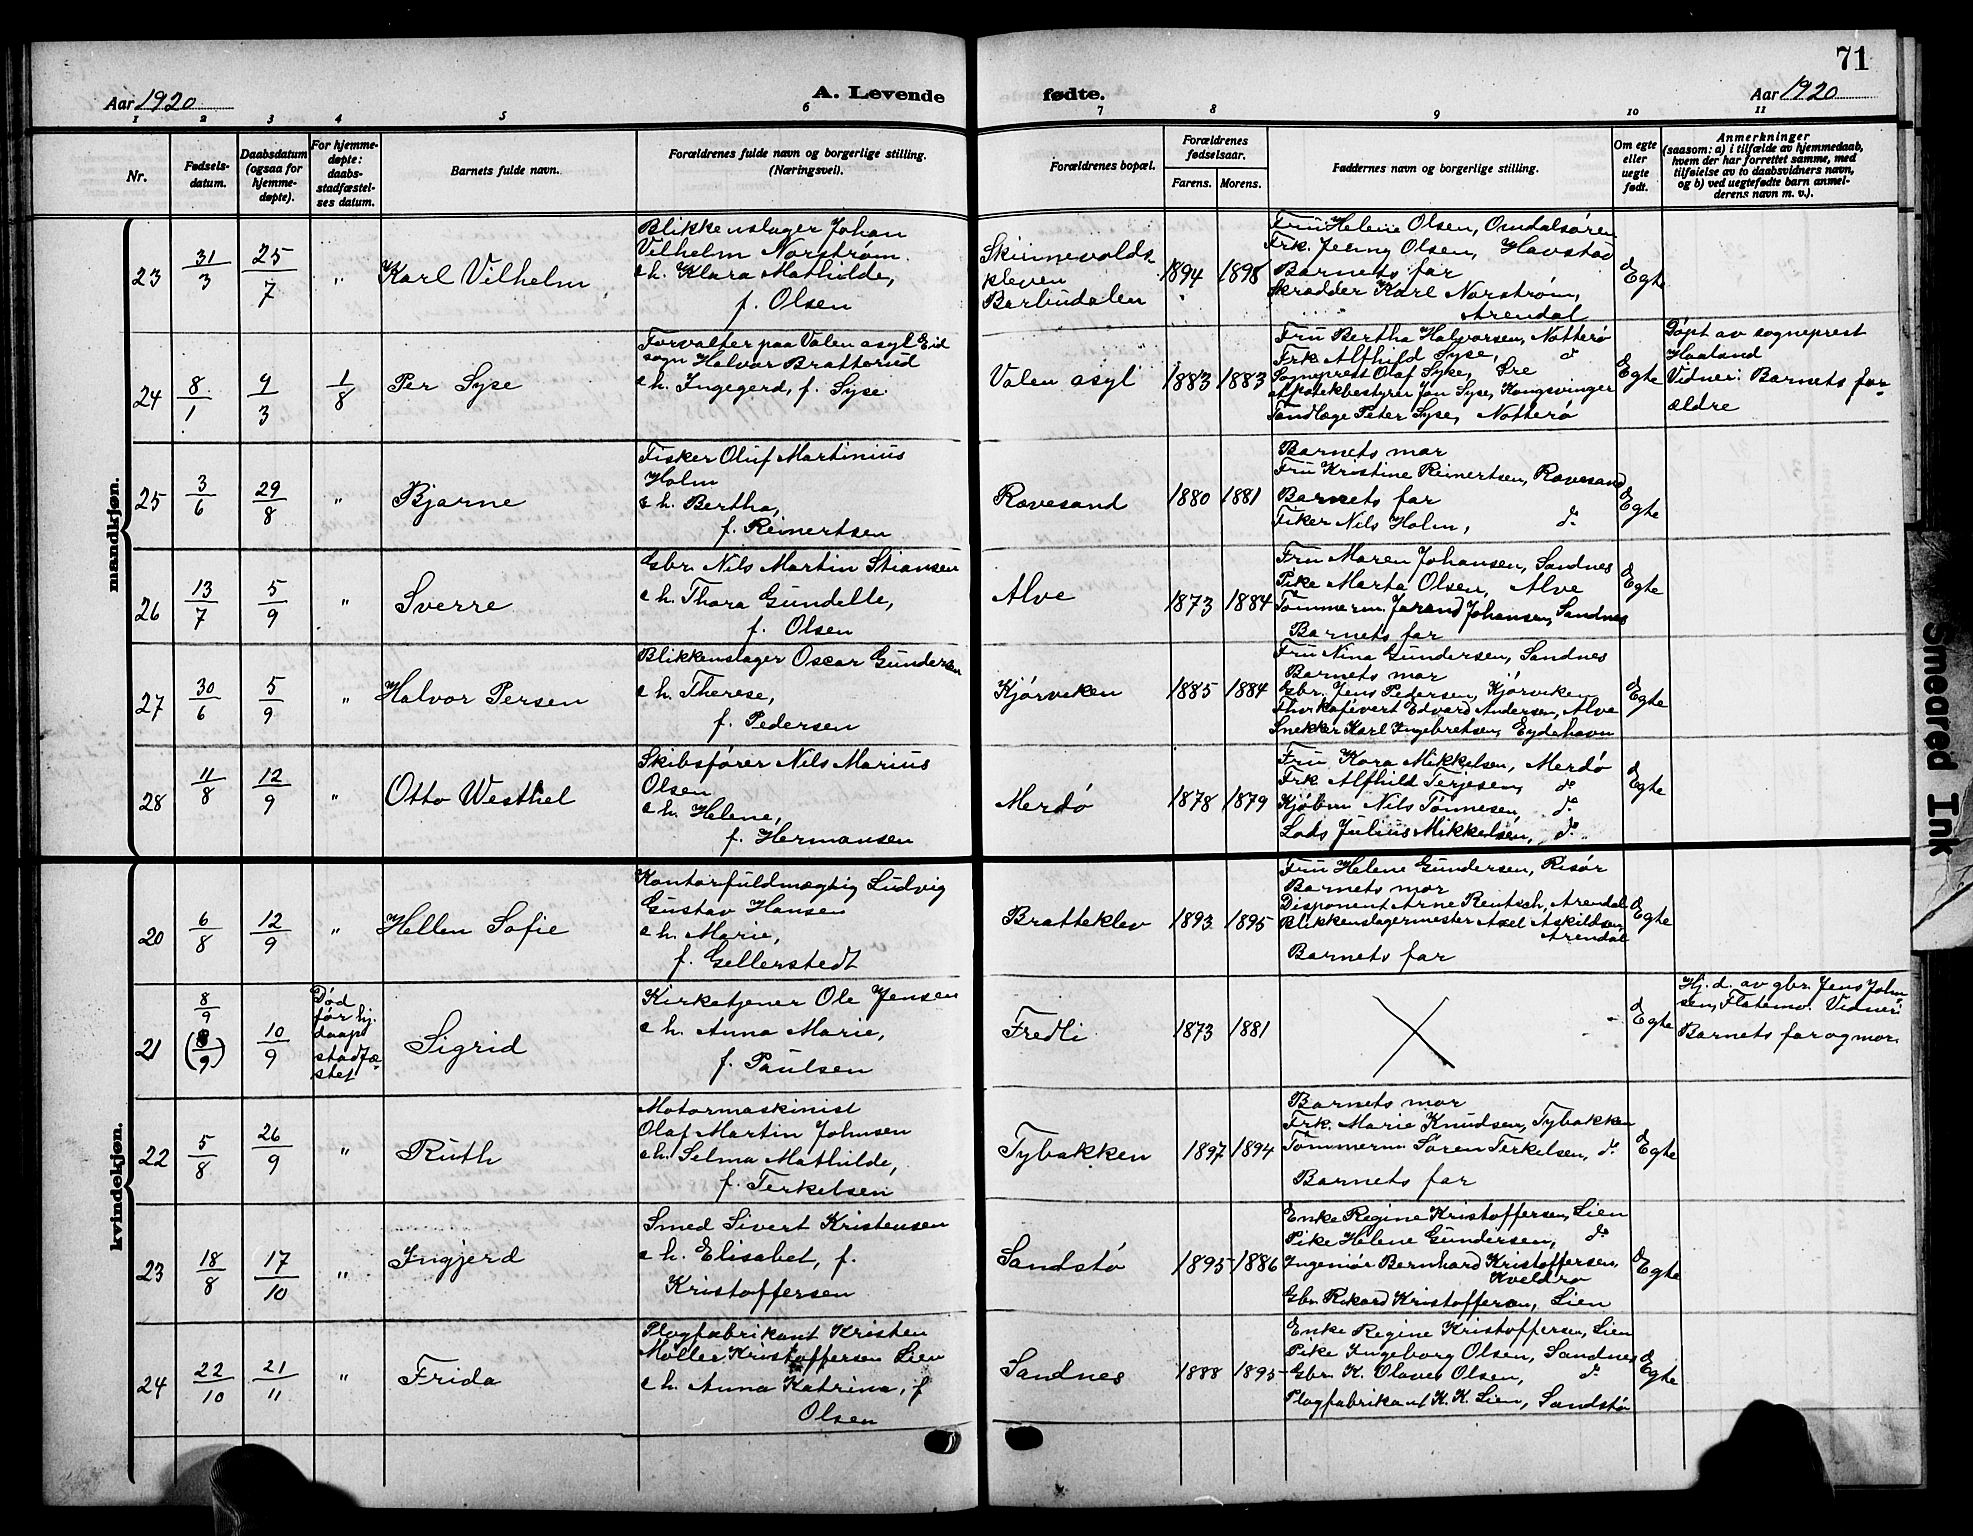 71
Aar 1920
A. Levende
fødte.
Aar 1920
1 2 3 4 5 6 7 8 9 10 11
Nr.
Fødsels-
datum.
Daabsdatum
(ogsaa for
hjemme-
døpte).
For hjemme-
døpte:
daabs-
stadfæstel-
ses datum.
Barnets fulde navn.
Forældrenes fulde navn og borgerlige stilling.
(Næringsvei).
Forældrenes bopæl.
Forældrenes
fødselsaar.
Farens. Morens.
Faddernes navn og borgerlige stilling.
Om egte
eller
uegte
født.
Anmerkninger
(saasom: a) i tilfælde av hjemmedaab,
hvem der har forrettet samme, med
tilføielse av to daabsvidners navn,
og b) ved uegtefødte barn anmel-
derens navn m. v.).
mandkjøn.
23
31/3
25/7
"
Karl Vilhelm
Blikkenslager Johan
Vilhelm Norstrøm
& h. Klara Mathilde,
f. Olsen
Skinnevolds-
kleven
Barbudalen
1894
1898
Fru Helene Olsen, Omdalsøren
Frk. Jenny Olsen, Havstad
Barnets far
Skrædder Karl Norstrøm,
Arendal
Egte
24
8/1
9/3
1/8
Per Syse
Forvalter paa Valen asyl Eid
sogn Halvor Bratterud
& h. Ingegerd, f. Syse
Valen asyl
1883
1883
Fru Bertha Halvorsen, Nøtterø
Frk Alfhild Syse, do
Sogneprest Olaf Syse, Øre
Apotekbestyrer Jon Syse, Kongsvinger
Tandlæge Peter Syse, Nøtterø
Egte
Døpt av sogneprest
Haaland
Vidner: Barnets for-
ældre
25
3/6
29/8
"
Bjarne
Fisker Oluf Martinius
Holm
& h. Bertha,
f. Reinertsen
Rævesand
1880
1881
Barnets mor
Fru Kristine Reinertsen, Rævesand
Barnets far
Fisker Nils Holm, do
Egte
26
13/7
5/9
"
Sverre
Gbr. Nils Martin Stiansen
& h. Thora Gundelle,
f. Olsen
Alve
1873
1884
Fru Maren Johansen, Sandnes
Pike Marta Olsen, Alve
Tømmerm. Jørand Johansen, Sandnes
Barnets far
Egte
27
30/6
5/9
"
Halvor Persen
Blikkenslager Oscar Gundersen
& h. Therese,
f. Pedersen
Kjørviken
1885
1884
Fru Nina Gundersen, Sandnes
Barnets mor
Gbr. Jens Pedersen, Kjørviken
Edvard Andersen, Alve
Snekker Karl Ingebretsen, Eydehavn
Egte
28
11/8
12/9
"
Otto Westhel
Skibsfører Nils Marius
Olsen
& h. Helene,
f. Hermansen
Merdø
1878
1879
Fru Kara Mikkelsen, Merdø
Frk Alfhild Terjesen, do
Kjøbm Nils Tønnesen, do
Lods Julius Mikkelsen, do
Egte
kvindekjøn.
20
6/8
12/9
"
Hellen Sofie
Kontorfuldmægtig Ludvig
Gustav Hansen
& h. Marie,
f. Gellerstedt
Bratteklev
1893
1895
Fru Helene Gundersen, Risør
Barnets mor
Disponent Arne Rentsch, Arendal
Blikkenslagermester Axel Askildsen,
Arendal
Barnets far
Egte
21
8/9
(8/9)
10/9
Død
før hj.
daaps
stadfæ-
stet
Sigrid
Kirketjener Ole Jensen
& h. Anna Marie,
f. Paulsen
Fredli
1873
1881
Egte
Hj. d. av gbr. Jens John-
sen, Flatemo. Vidner:
Barnets far og mor.
22
5/8
26/9
"
Ruth
Motormaskinist
Olaf Martin Johnsen
& h. Selma Mathilde,
f. Terkelsen
Tybakken
1897
1894
Barnets mor
Frk. Marie Knudsen, Tybakken
Tømmerm Søren Terkelsen, do
Barnets far
Egte
23
18/8
17/10
"
Ingjerd
Smed Sivert Kristensen
& h. Elisabet, f.
Kristoffersen
Sandstø
1895
1886
Enke Regine Kristoffersen, Lien
Pike Helene Gundersen, do
Ingeniør Bernhard Kristoffersen,
Kveldro
Gbr. Rikard Kristoffersen, Lien
Egte
24
22/10
21/11
"
Frida
Plogfabrikant Kristen
Møller Kristoffersen Lien
& h. Anna Katrina, f
Olsen
Sandnes
1888
1895
Enke Regine Kristoffersen, Lien
Pike Ingeborg Olsen, Sandnes
Gbr. K. Olaves Olsen, do
Plogfabrikant K. K. Lien, Sandstø
Egte
Smeared Ink